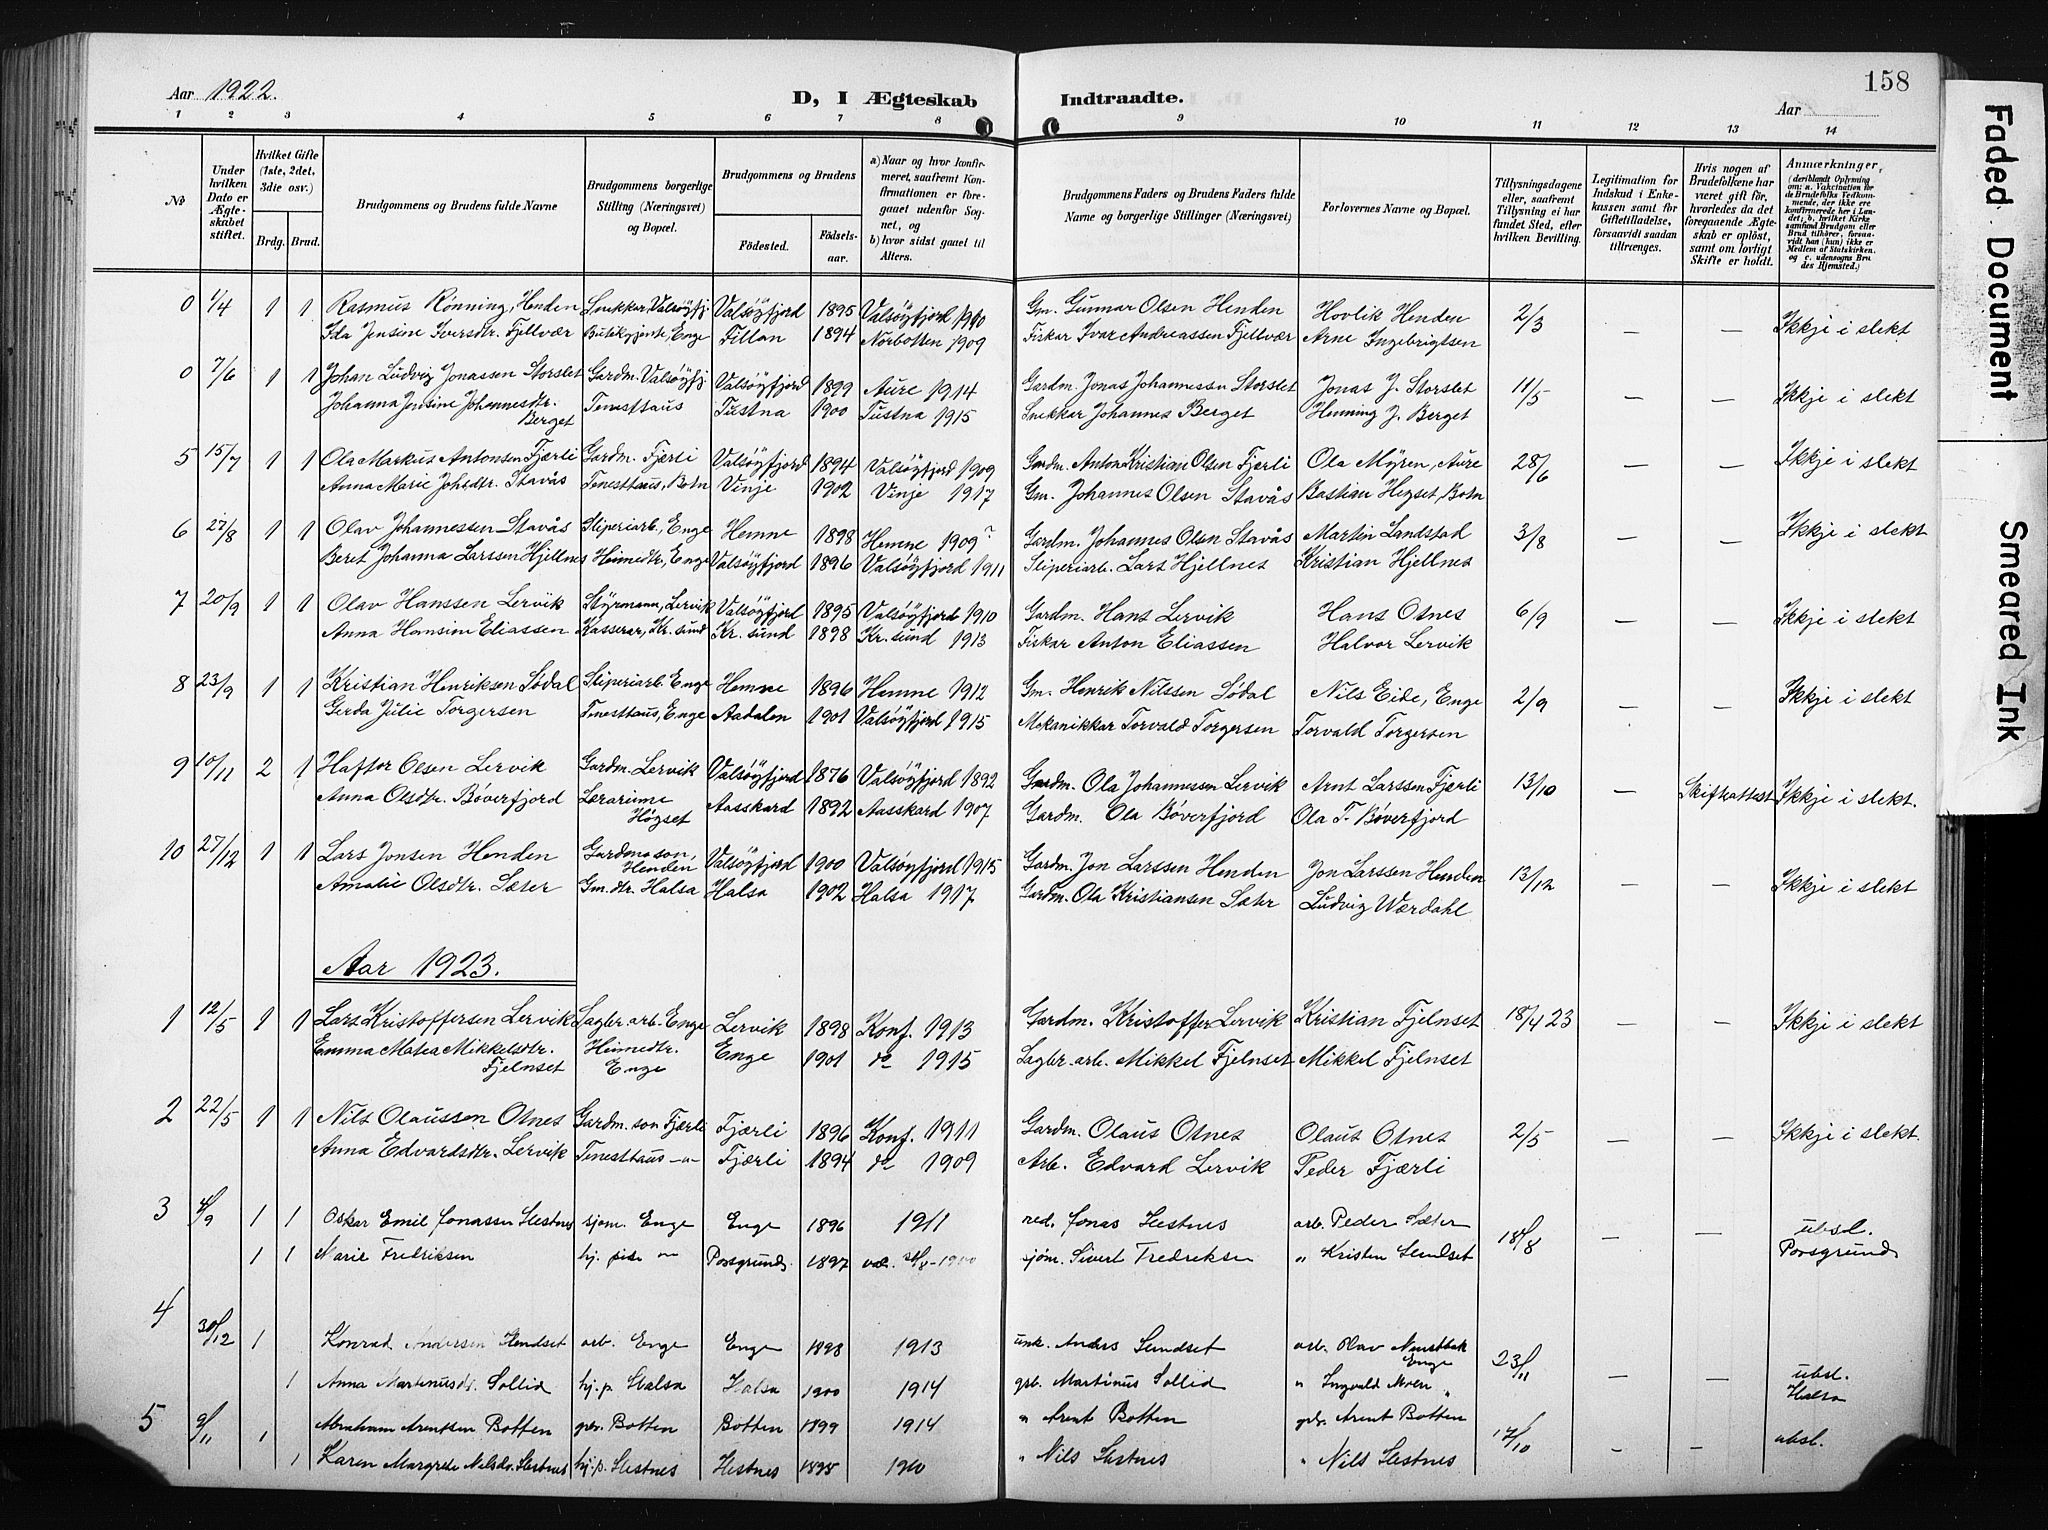 158
Aar 1922.
D, I Ægteskab Indtraadte.
Aar
1 2 3 4 5 6 7 8 9 10 11 12 13 14
No
Under hvilken Dato er Ægteskabet stiftet.
Hvilket Gifte (1ste, 2det, 3die osv.)
Brdg. Brud.
Brudgommens og Brudens fulde Navne
Brudgommens borgerlige Stilling (Næringsvei) og Bopæl.
Brudgommens og Brudens
Födested. Födselsaar.
a) Naar og hvor konfirmeret, saafremt Konfirmationen er foregaaet udenfor Sognet, og
b) hvor sidst gaaet til Alters.
Brudgommens Faders og Brudens Faders fulde Navne og borgerlige Stillinger (Næringsvei)
Forlovernes Navne og Bopæl.
Tillysningsdagene eller, saafremt Tillysning ei har fundet Sted, efter hvilken Bevilling.
Legitimation for Indskud i Enkekassen samt for Giftetilladelse, forsaavidt saadan tiltrænges.
Hvis nogen af Brudefolkene har været gift før, hvorledes da det foregaaende Ægteskab er oplöst, samt om lovligt Skifte er holdt.
Anmærkninger, (deriblandt Oplysning om: a. Vakcination for de Brudefolks Vedkommende, der ikke ere konfirmerede her i Landet; b. hvilket Kirkesamfund Brudgom eller Brud tilhörer, forsaavidt han (hun) ikke er Medlem af Statskirken, og c. udensogns Brudes Hjemsted.)
0 1/4 1 1 Rasmus Rønning, Henden Snekkar, Valsøyfj. Valsøyfjord 1895 Valsøyfjord 1910 Gm. Gunnar Olsen Henden Hovlik Henden 2/3 — — Ikkje i slekt
Ida Jensine Iversdtr. Fjellvær Butikkjente, Enge Fillan 1894 Norbotten 1909 Fiskar Ivar Andreassen Fjellvær Arne Ingebrigtsen
0 7/6 1 1 Johan Ludvig Jonassen Storslet Gardm. Valsøyfj. Valsøyfjord 1899 Aure 1914 Gardm. Jonas Johannessen Storslet Jonas J. Storslet 11/5 — — Ikkje i slekt
Johanna Jensine Johannesdtr. Berget Tenesttaus Tustna 1900 Tustna 1915 Snekkar Johannes Berget Henning J. Berget
5 15/7 1 1 Ola Markus Antonsen Fjærli Gardm. Fjærli Valsøyfjord 1894 Valsøyfjord 1909 Gardm. Anton Kristian Olsen Fjerli Ola Myren, Aure 28/6 — — Ikkje i slekt
Anna Marie Johsdtr. Stavås Tenesttaus, Botn Vinje 1902 Vinje 1917 Gm. Johannes Olsen Stavås Bastian Hegset, Botn
6 27/8 1 1 Olav Johannessen Stavås Sliperiarb., Enge Hemne 1898 Hemne 1909? Gardm. Johannes Olsen Stavås Martin Landstad 3/8 — — Ikkje i slekt
Beret Johanna Larssen Hjellnes Heimedtr., Enge Valsøyfjord 1896 Valsøyfjord 1911 Sliperiarb. Lars Hjellnes Kristian Hjellnes
7 20/9 1 1 Olav Hanssen Lervik Styrmann, Lervik Valsøyfjord 1895 Valsøyfjord 1910 Gardm. Hans Lervik Hans Otnes 6/9 — — Ikkje i slekt
Anna Hansine Eliassen Kasserar, Kr.sund Kr. sund 1898 Kr. sund 1913 Fiskar Anton Eliassen Halvor Lervik
8 23/9 1 1 Kristian Henriksen Södal Sliperiarb. Enge Hemne 1896 Hemne 1912 Gm. Henrik Nilssen Södal Nils Eide, Enge 2/9 — — Ikkje i slekt
Gerda Julie Torgersen Tenesttaus, Enge Aadalen 1901 Valsøyfjord 1915 Mekanikkar Torvald Torgersen Torvald Torgersen
9 10/11 2 1 Haftor Olsen Lervik Gardm. Lervik Valsøyfjord 1876 Valsøyfjord 1892 Gardm. Ola Johannessen Lervik Arnt Larssen Fjerli 13/10 — Skifteattest Ikkje i slekt.
Anna Olsdtr. Bøverfjord Lærarinne Høgset Aasskard 1892 Aasskard 1907 Gardm. Ola Bøverfjord Ola T. Bøverfjord
10 27/12 1 1 Lars Jonsen Henden Gardmannsson, Henden Valsøyfjord 1900 Valsøyfjord 1915 Gardm. Jon Larssen Henden Jon Larssen Henden 13/12 — — Ikkje i slekt
Amalie Olsdtr. Sæter Gm.dtr. Halsa Halsa 1902 Halsa 1917 Gardm. Ola Kristiansen Sæter Ludvig Wærdahl
Aar 1923.
1 12/5 1 1 Lars Kristoffersen Lervik Sagbr. arb. Enge Lervik 1898 Konf. 1913 Gardm. Kristoffer Lervik Kristian Fjelnset 18/4 23 — — Ikkje i slekt
Emma Matea Mikkelsdtr. Fjelnset Heimedtr. Enge Enge 1901 do 1915 Sagbr. arb. Mikkel Fjelnset Mikkel Fjelnset
2 22/5 1 1 Nils Olaussen Otnes Gardm. son Fjærli Fjærli 1896 Konf. 1911 Gardm. Olaus Otnes Olaus Otnes 2/5 — — Ikkje i slekt
Anna Edvardsdtr. Lervik Tenesttaus —"— Fjærli 1894 do 1909 Arb. Edvard Lervik Peder Fjærli
3 4/9 1 1 Oskar Emil Jonassen Hestnes sjøm. Enge Enge 1896 1911 red. Jonas Hestnes arb. Peder Sæter 18/8 — — ubsl.
1 1 Marie Fredriksen hj. pike " Porsgrund. 1897 sjöm. Sivert Fredriksen " Kristen Hendset Porsgrund
4 30/12 1 Konrad Andersen Hendset arb. Enge Enge 1898 1913 unk. Anders Hendset arb. Olav Enge 23/11 — — ubsl.
1 Anna Martinusd. Sollid hj. p. Halsa Halsa 1900 1914 grb. Martinus Sollid " Ingvald Moen " Halsa
5 9/11 1 Abraham Arentsen Botten gbr. Botten Botten 1899 1914 " Arent Botten gbr. Arent Botten 17/10 — — ubsl.
1 Karen Margrete Nilsdr. Hestnes hj. p. Hestnes Hestnes 1895 1910 " Nils Hestnes " Nils Hestnes
Faded Document
Smeared Ink